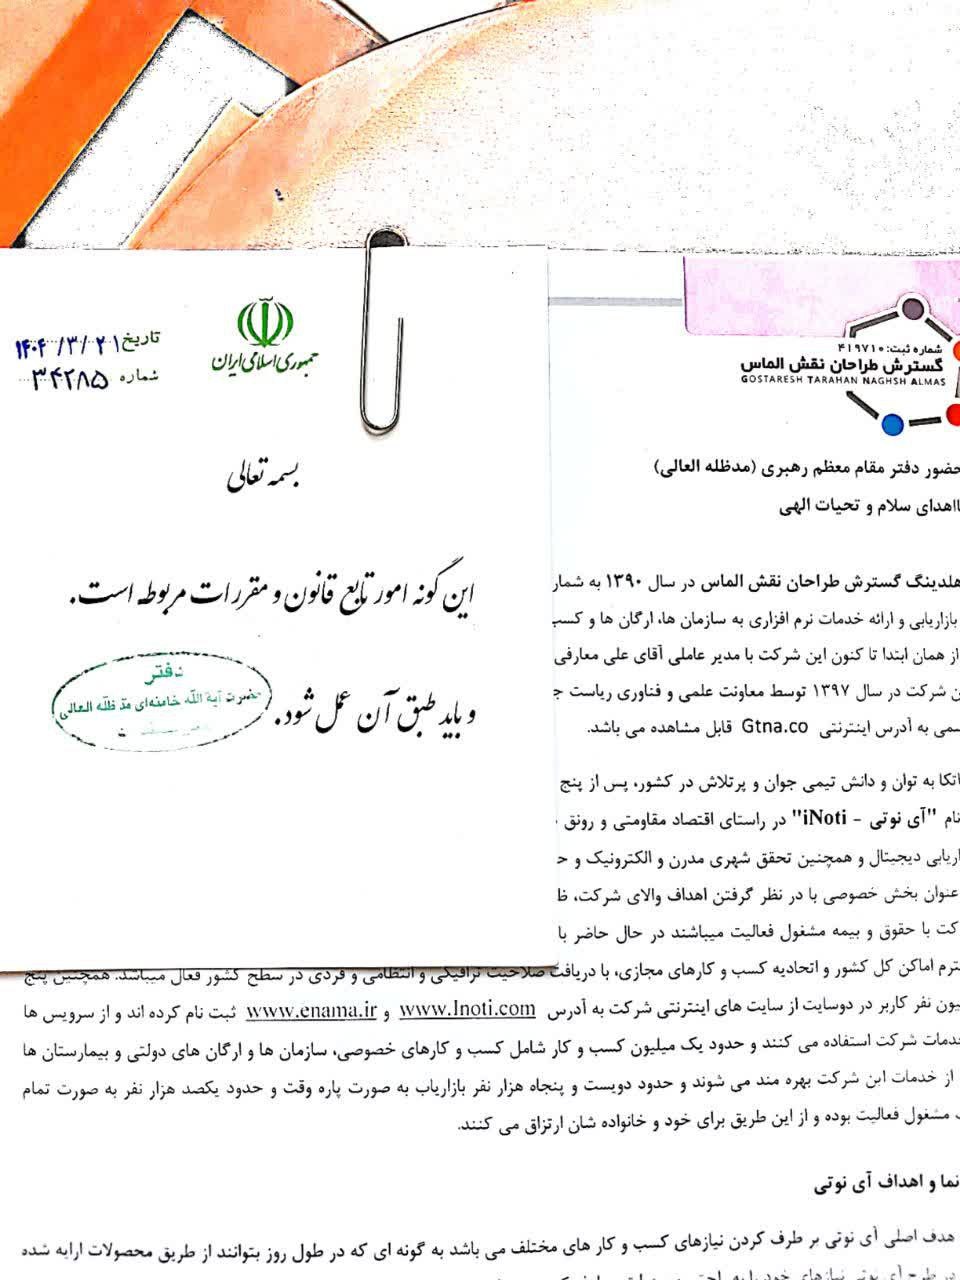 جمهوری اسلامی ایران
تاریخ ۱۴۰۴/۳/۲۱
شماره ۳۴۲۸۵
بسمه تعالی
این گونه امور تابع قانون و مقررات مربوطه است.
و باید طبق آن عمل شود.
دفتر
حضرت آیة الله خامنه‌ای مد ظله العالی
شماره ثبت: ۴۱۹۷۱۰
گسترش طراحان نقش الماس
GOSTARESH TARAHAN NAGHSH ALMAS
حضور دفتر مقام معظم رهبری (مدظله العالی)
بااهدای سلام و تحیات الهی
هلدینگ گسترش طراحان نقش الماس در سال ۱۳۹۰ به شمار
بازاریابی و ارائه خدمات نرم افزاری به سازمان ها، ارگان ها و کسب
از همان ابتدا تا کنون این شرکت با مدیر عاملی آقای علی معارفی
ن شرکت در سال ۱۳۹۷ توسط معاونت علمی و فناوری ریاست ج
سمی به آدرس اینترنتی Gtna.co قابل مشاهده می باشد.
اتکا به توان و دانش تیمی جوان و پرتلاش در کشور، پس از پنج
نام "آی نوتی - iNoti" در راستای اقتصاد مقاومتی و رونق
اریابی دیجیتال و همچنین تحقق شهری مدرن و الکترونیک و ح
عنوان بخش خصوصی با در نظر گرفتن اهداف والای شرکت، ظ
کت با حقوق و بیمه مشغول فعالیت میباشند در حال حاضر با
ترم اماکن کل کشور و اتحادیه کسب و کارهای مجازی، با دریافت صلاحیت ترافیکی و انتظامی و فردی در سطح کشور فعال میباشد. همچنین پنج
یون نفر کاربر در دوسایت از سایت های اینترنتی شرکت به آدرس www.Inoti.com و www.enama.ir ثبت نام کرده اند و از سرویس ها
خدمات شرکت استفاده می کنند و حدود یک میلیون کسب و کار شامل کسب و کارهای خصوصی، سازمان ها و ارگان های دولتی و بیمارستان ها
از خدمات این شرکت بهره مند می شوند و حدود دویست و پنجاه هزار نفر بازاریاب به صورت پاره وقت و حدود یکصد هزار نفر به صورت تمام
مشغول فعالیت بوده و از این طریق برای خود و خانواده شان ارتزاق می کنند.
نما و اهداف آی نوتی
هدف اصلی آی نوتی بر طرف کردن نیازهای کسب و کار های مختلف می باشد به گونه ای که در طول روز بتوانند از طریق محصولات ارایه شده